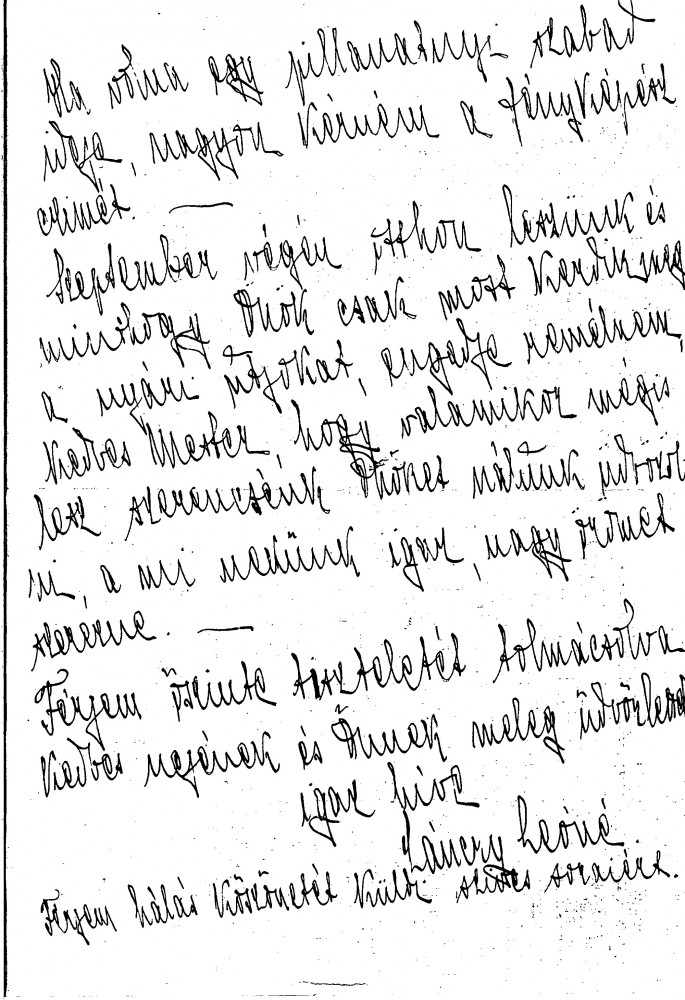 Ha volna egy pillanatnyi szabad
ideje, nagyon kérném a fényképész
czimét. —
Szeptember végén itthon leszünk és
minthogy Önök csak most kezdik meg
a nyári útjokat, engedje remélnem,
kedves Mester hogy valamikor mégis
lesz szerencsénk Önöket nálunk üdvözöl
ni, a mi nekünk igaz, nagy örömet
szerezne. —
Férjem őszinte tiszteletét tolmácsolva
kedves nejének és Önnek meleg üdvözlettel
igaz híve
Lánczy Leóné
Férjem hálás köszönetét küldi szíves soraiért.